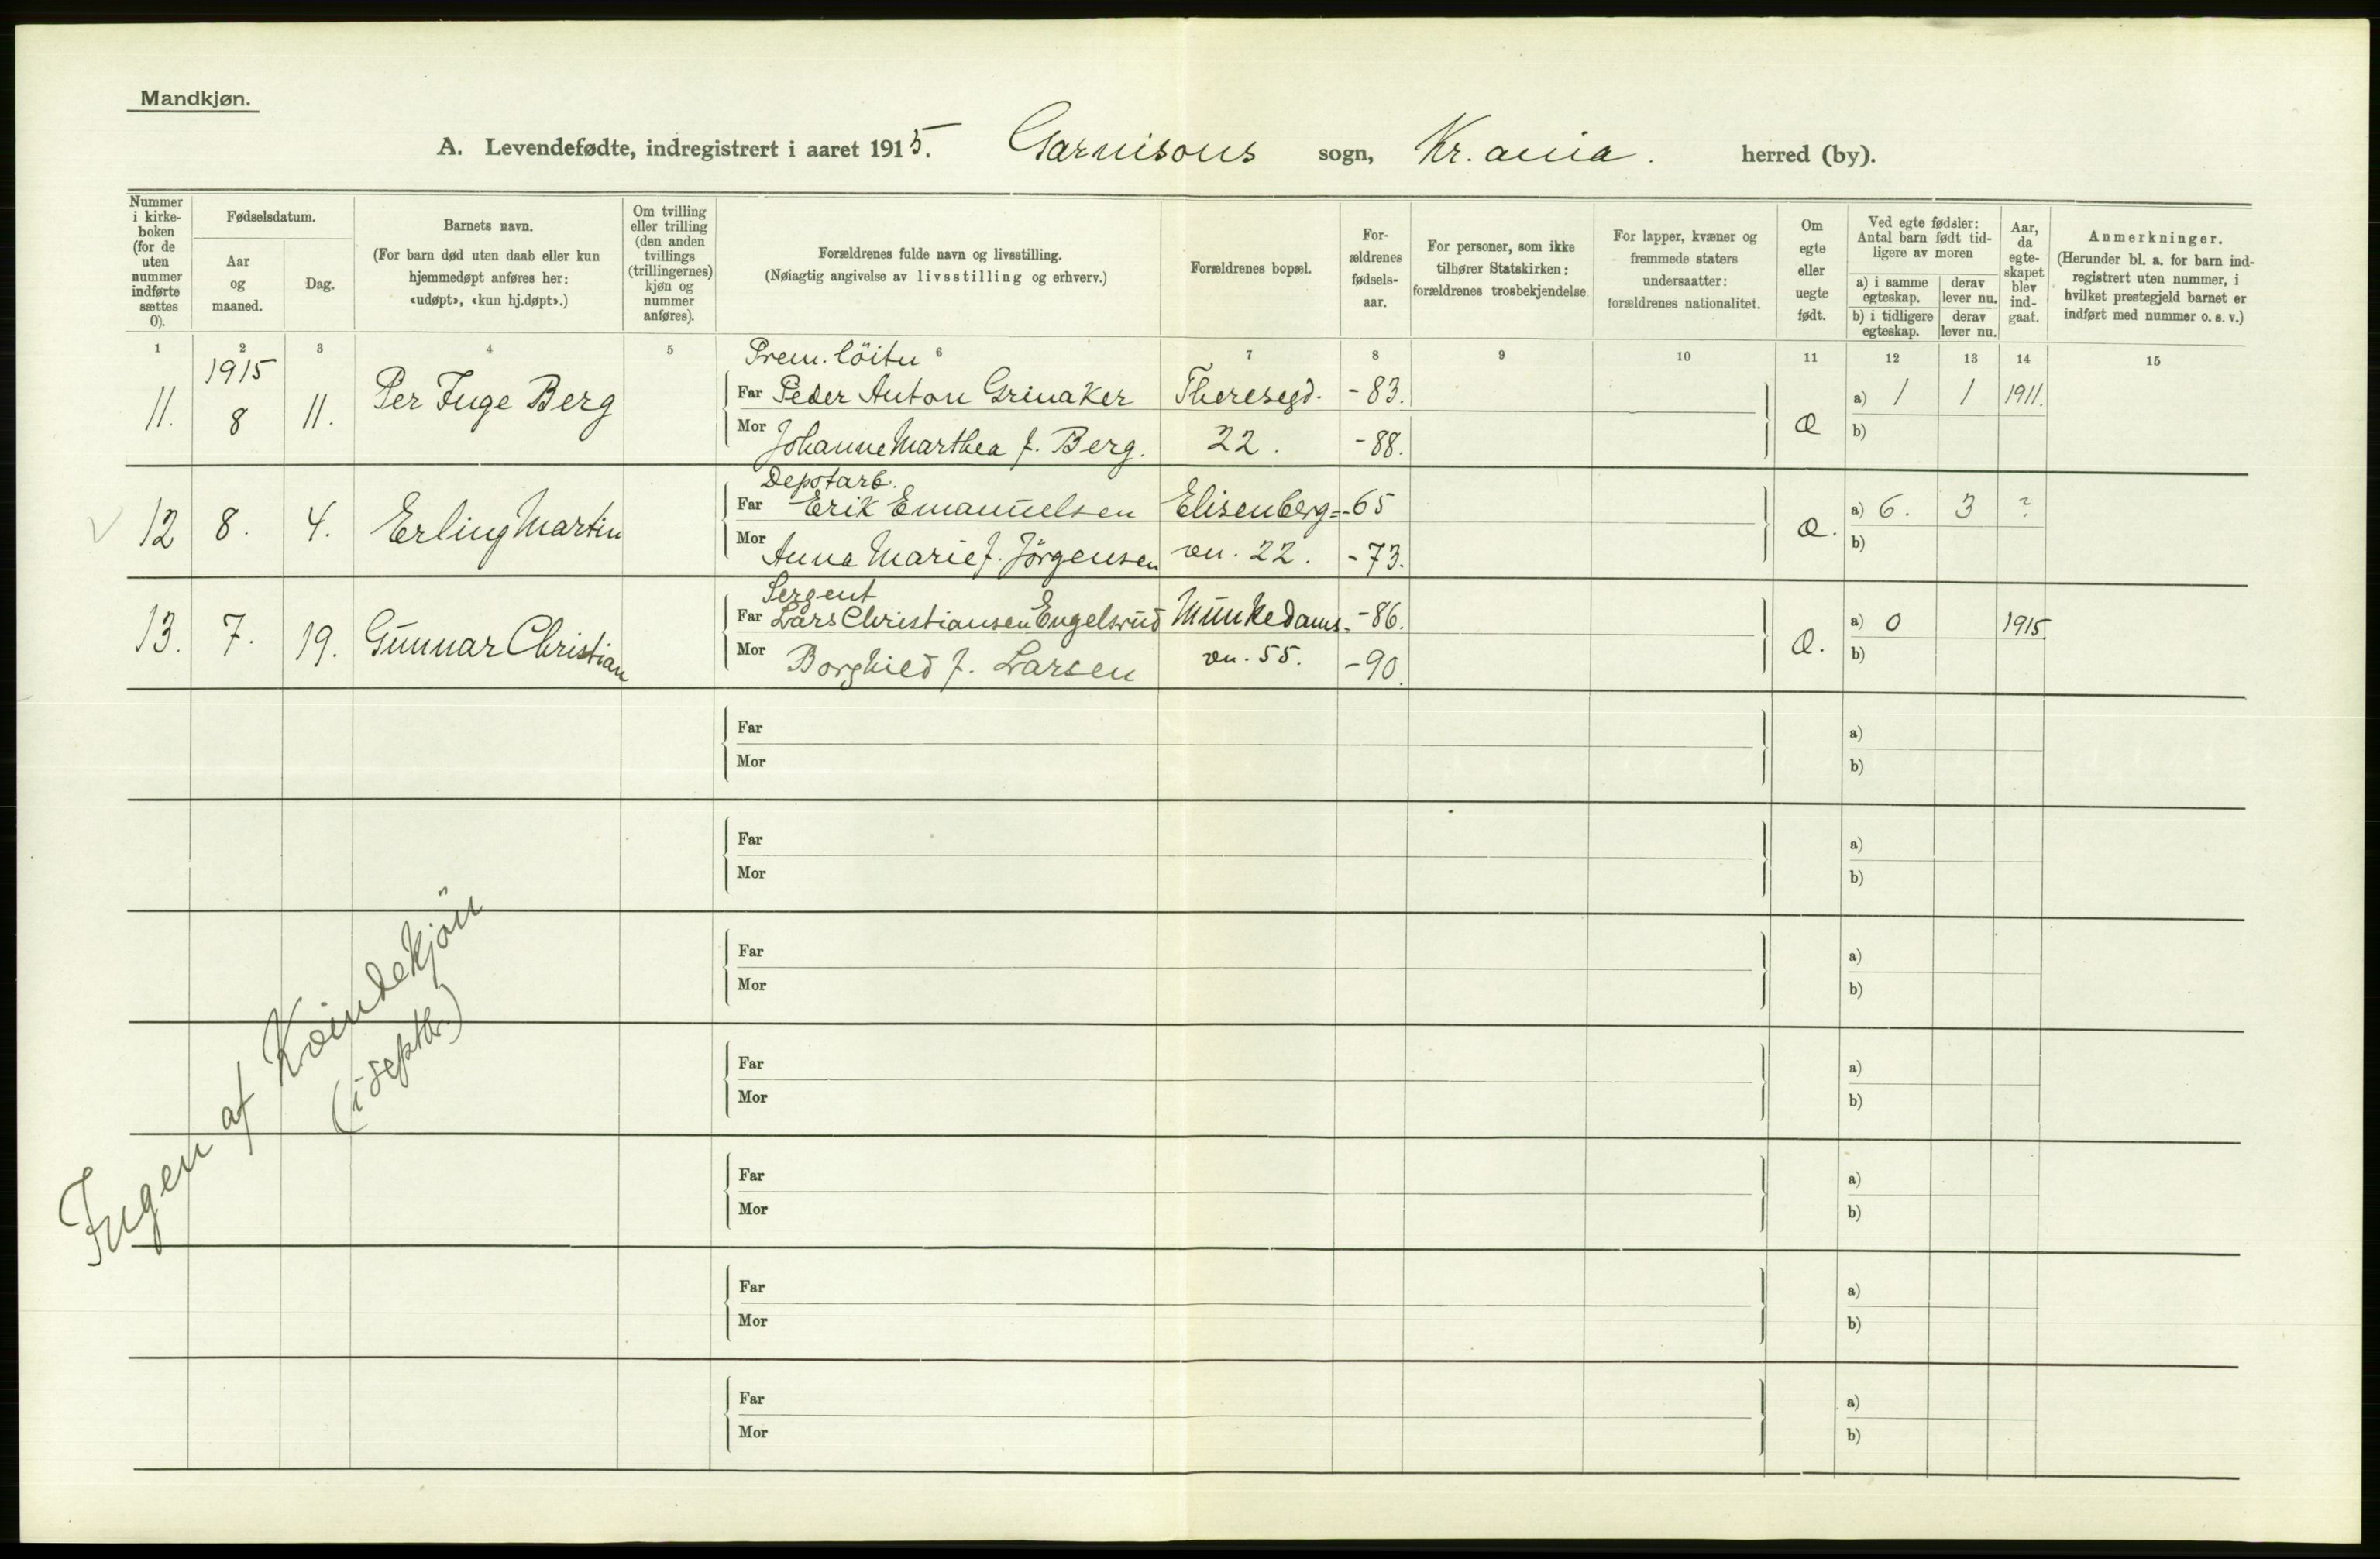 Mandkjøn.
A. Levendefødte, indregistrert i aaret 1915. Garnisons sogn, Kr.ania. herred (by).
Nummer i kirke-boken (for de uten nummer indførte sættes 0).
Fødselsdatum.
Aar og maaned.
Dag.
Barnets navn.
(For barn død uten daab eller kun hjemmedøpt anføres her: «udøpt», «kun hj.døpt».)
Om tvilling eller trilling (den anden tvillings (trillingernes) kjøn og nummer anføres).
Forældrenes fulde navn og livsstilling.
(Nøiagtig angivelse av livsstilling og erhverv.)
Forældrenes bopæl.
For-ældrenes fødsels-aar.
For personer, som ikke tilhører Statskirken: forældrenes trosbekjendelse
For lapper, kvæner og fremmede staters undersaatter: forældrenes nationalitet.
Om egte eller uegte født.
Ved egte fødsler: Antal barn født tid-ligere av moren
a) i samme egteskap.
derav lever nu.
b) i tidligere egteskap.
derav lever nu.
Aar, da egte-skapet blev ind-gaat.
Anmerkninger.
(Herunder bl. a. for barn ind-registrert uten nummer, i hvilket prestegjeld barnet er indført med nummer o. s. v.)
1 2 3 4 5 6 7 8 9 10 11 12 13 14 15
1915
Prem. löitn
11. 8 11. Per Inge Berg Far Peder Anton Grinaker Theresegd. -83. a) 1 1 1911.
Mor Johanne Marthea f. Berg. 22. -88. Æ b)
Depotarb.
12 8. 4. Erling Martin Far Erik Emanuelsen Elisenberg= -65 a) 6. 3 ?
Mor Anna Marie f. Jörgensen vn. 22. -73. Æ. b)
Sergent
13. 7. 19. Gunnar Christian Far Lars Christiansen Engelsrud Munkedams= -86. a) 0 1915
Mor Borghild f. Larsen vn. 55. -90. Æ. b)
Far a)
Mor b)
Far a)
Mor b)
Far a)
Mor b)
Far a)
Mor b)
Far a)
Mor b)
Far a)
Mor b)
Far a)
Mor b)
Ingen af Kvindekjön
(i septbr.)